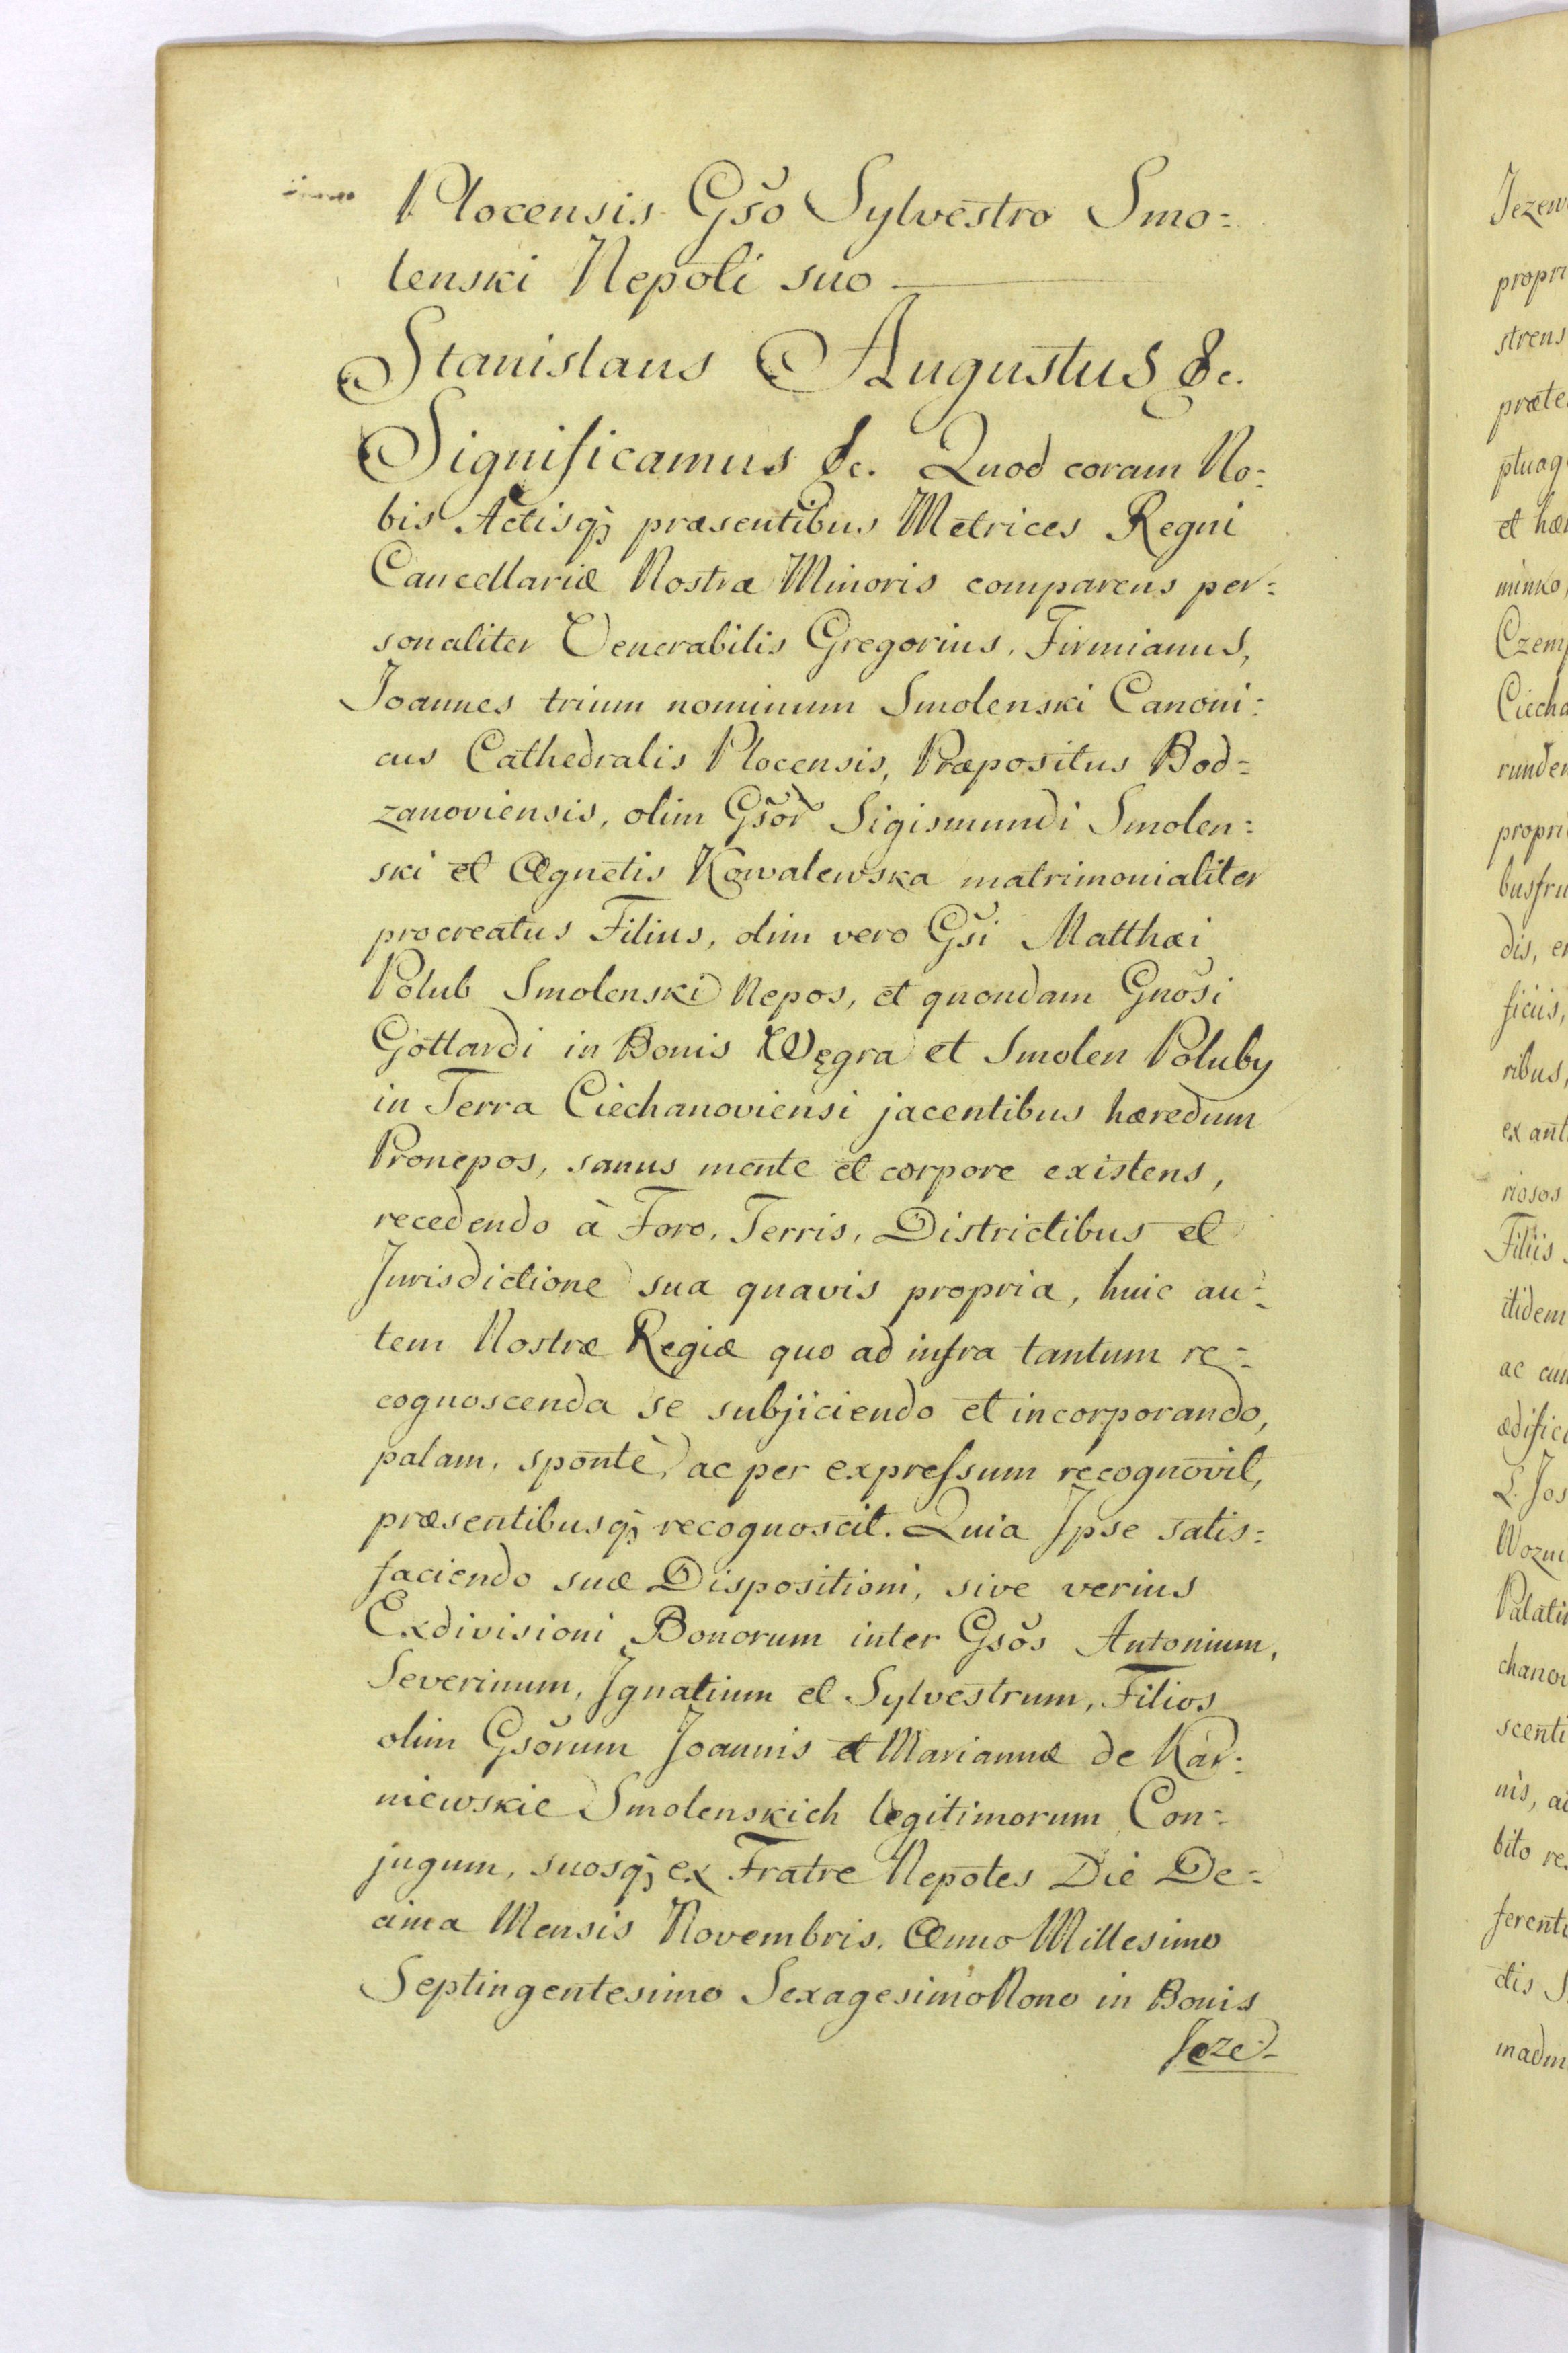 Plocensis Gšo Sylvestro Smo=
lenski Nepoti suo
Stanislaus Augustus &c.
Significamus &c. Quod coram No=
bis Actisq; præsentibus Metrices Regni
Cancellariæ Nostræ Minoris comparens per=
sonaliter Venerabilis Gregorius, Firmianus,
Joannes trium nominum Smolenski Canoni=
cus Cathedralis Plocensis, Præpositus Bod=
zanoviensis, olim Gšor Sigismundi Smolen=
ski et Agnetis Kowalewska matrimonialiter
procreatus Filius, olim vero Gši Matthæi
Polub Smolenski Nepos, et quondam Gnoši
Gottardi in Bonis Węgra et Smolen Poluby
in Terra Ciechanoviensi jacentibus hæredum
Pronepos, sanus mente et corpore existens,
recedendo à Foro, Terris, Districtibus et
Jurisdictione sua quavis propria, huic au=
tem Nostræ Regiæ quo ad infra tantum re=
cognoscenda se subjiciendo et incorporando,
palam, spontè, ac per expressum recognovit,
præsentibusq; recognoscit. Quia Ipse satis=
faciendo suæ Dispositioni, sive verius
Exdivisioni Bonorum inter Gsos Antonium,
Severinum, Ignatium et Sylvestrum, Filios
olim Gsorum Joannis et Mariannæ de Kar=
niewskie Smolenskich legitimorum Con=
jugum, suosq; ex Fratre Nepotes Die De=
cima Mensis Novembris. Anno Millesimo
Septingentesimo Sexagesimo Nono in Bonis
Jeze=
propri
strens
præte
et hæ
Czem
Ciecha
propri
ribus,
riosos
Filiis
itidem
Palati
scenti
bito re
ferent